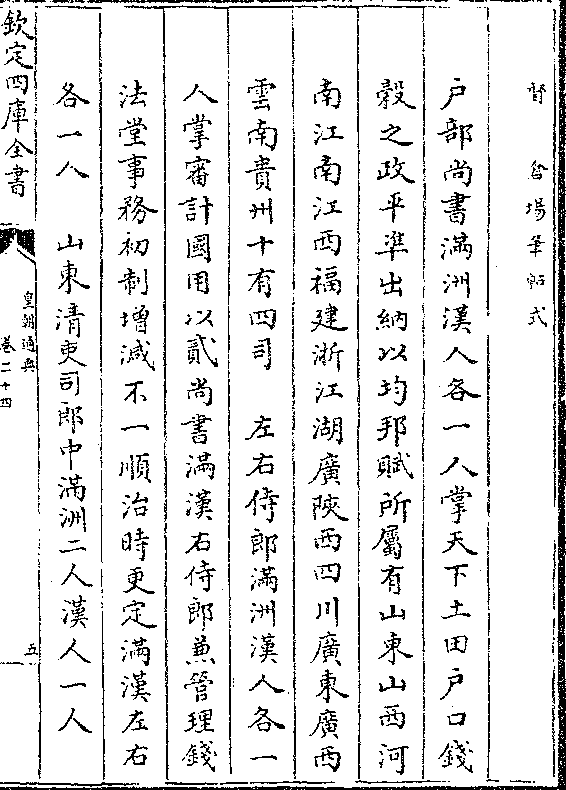 督 倉場筆帖式
戶部尚書滿洲漢人各一人掌天下土田戶口錢
穀之政平準出納以均邦賦所屬有山東山西河
南江南江西福建浙江湖廣陝西四川廣東廣西
雲南貴州十有四司 左右侍郎滿洲漢人各一
人掌審計國用以貳尚書滿漢右侍郎兼管理錢
法堂事務初制增減不一順治時更定滿漢左右
各一人 山東清吏司郎中滿洲二人漢人一人
欽定四庫全書
皇朝通典
卷二十四
五